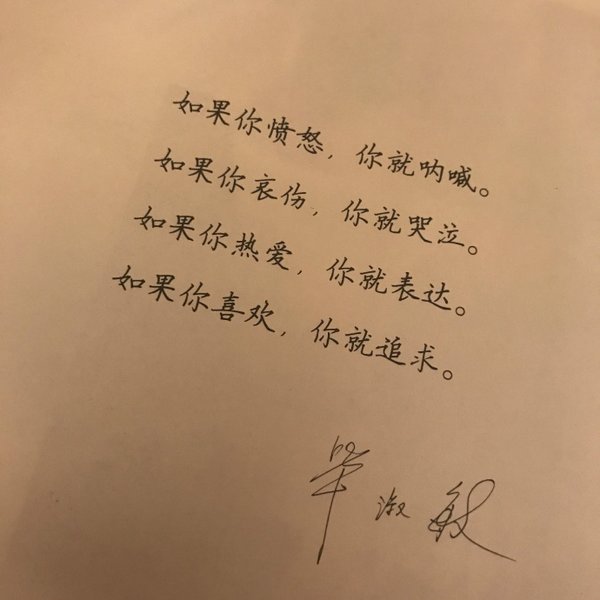 如果你愤怒，你就呐喊。
如果你哀伤，你就哭泣。
如果你热爱，你就表达。
如果你喜欢，你就追求。
毕淑敏